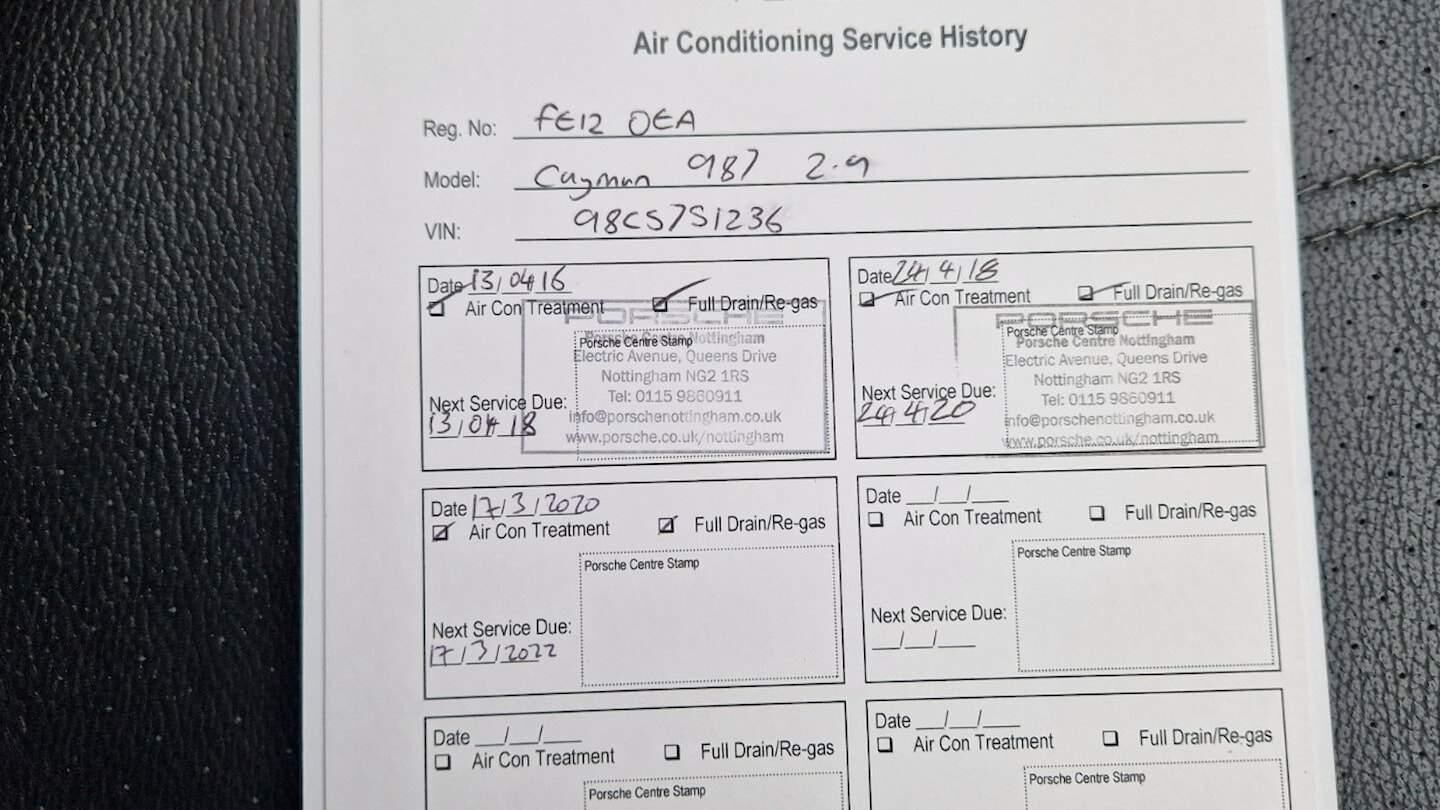 Air Conditioning Service History
Reg. No: FE12 OEA
Model: Cayman 987 2.9
VIN: 98CS7S1236
Date 13/04/16
Air Con Treatment Full Drain/Re-gas
PORSCHE
Porsche Centre Stamp
Porsche Centre Nottingham
Electric Avenue, Queens Drive
Nottingham NG2 1RS
Tel: 0115 9860911
info@porschenottingham.co.uk
www.porsche.co.uk/nottingham
Next Service Due:
13/04/18
Date 24/4/18
Air Con Treatment Full Drain/Re-gas
PORSCHE
Porsche Centre Stamp
Porsche Centre Nottingham
Electric Avenue, Queens Drive
Nottingham NG2 1RS
Tel: 0115 9860911
info@porschenottingham.co.uk
www.porsche.co.uk/nottingham
Next Service Due:
24/4/20
Date 17/3/2020
Air Con Treatment Full Drain/Re-gas
Porsche Centre Stamp
Next Service Due:
17/3/2022
Date __/__/___
Air Con Treatment Full Drain/Re-gas
Porsche Centre Stamp
Next Service Due:
__/__/___
Date __/__/___
Air Con Treatment Full Drain/Re-gas
Porsche Centre Stamp
Date __/__/___
Air Con Treatment Full Drain/Re-gas
Porsche Centre Stamp